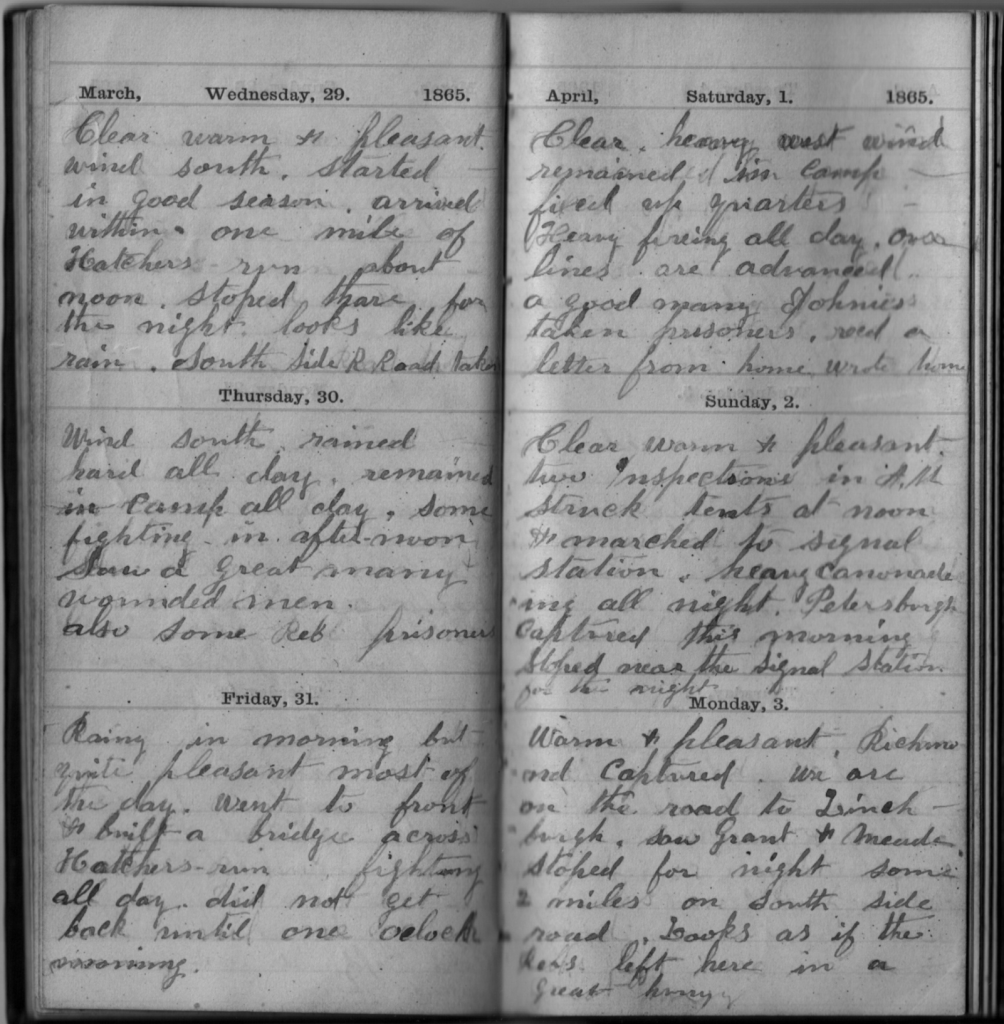 March, Wednesday, 29. 1865.
Clear warm & pleasant.
wind south. started
in good season. arrived
within one mile of
Hatchers-run about
noon. stoped thare for
the night. looks like
rain. South Side R Road taken
Thursday, 30.
Wind south. rained
hard all day. remained
in camp all day. some
fighting in after-noon
Saw a great many
wounded men.
also some Reb prisoners
Friday, 31.
Rainy in morning but
quite pleasant most of
the day. Went to front
& built a bridge across
Hatchers-run fighting
all day. did not get
back until one oclock
morning.
April, Saturday, 1. 1865.
Clear. heavy west wind
remained in camp
fixed up quarters
Heavy fireing all day. our
lines are advanced
a good many Johnies
taken prisoners. recd a
letter from home wrote home
Sunday, 2.
Clear warm & pleasant.
two Inspections in A.M
struck tents at noon
& marched to signal
station. heavy canonade
ing all night. Petersburgh
captured this morning
stoped near the signal station
for the night
Monday, 3.
Warm & pleasant. Richmo
nd captured. we are
on the road to Linch
burgh. saw Grant & Meade
stoped for night some
2 miles on south side
road. Looks as if the
Rebs left here in a
great hurry